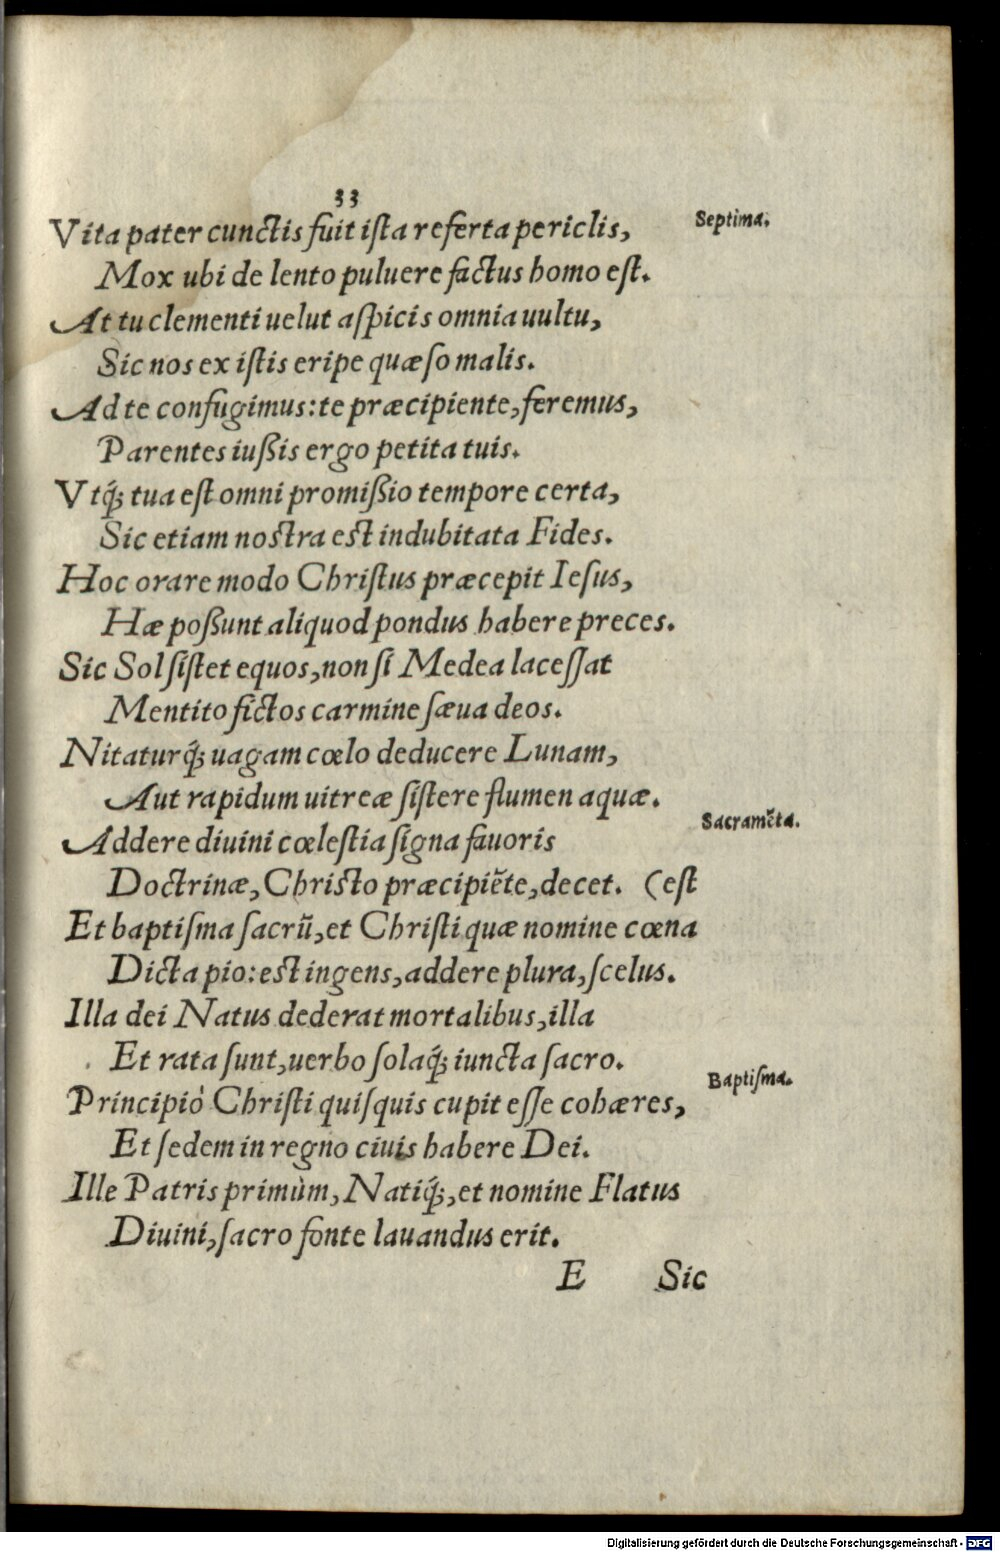 33
Vita pater cunctis fuit iſta referta periclis,
Septima.
Mox ubi de lento puluere factus homo eſt.
At tu clementi uelut aſpicis omnia uultu,
Sic nos ex iſtis eripe quæſo malis.
Ad te confugimus: te præcipiente, feremus,
Parentes iußis ergo petita tuis.
Vtq́; tua eſt omni promißio tempore certa,
Sic etiam nostra est indubitata Fides.
Hoc orare modo Chriſtus præcepit Ieſus,
Hæ poßunt aliquod pondus habere preces.
Sic Sol ſiſtet equos, non ſi Medea laceſſat
Mentito fictos carmine ſæua deos.
Nitaturq́; uagam cœlo deducere Lunam,
Aut rapidum uitreæ ſiſtere flumen aquæ.
Sacramẽta.
Addere diuini cœleſtia ſigna fauoris
Doctrinæ, Christo præcipiẽte, decet. (eſt
Et baptiſma ſacrũ, et Chriſti quæ nomine cœna
Dicta pio: est ingens, addere plura, ſcelus.
Illa dei Natus dederat mortalibus, illa
Et rata ſunt, uerbo ſolaq́; iuncta ſacro.
Baptiſma.
Principiò Chriſti quiſquis cupit eſſe cohæres,
Et ſedem in regno ciuis habere Dei.
Ille Patris primùm, Natiq́;, et nomine Flatus
Diuini, ſacro fonte lauandus erit.
E Sic
Digitalisierung gefördert durch die Deutsche Forschungsgemeinschaft - DFG